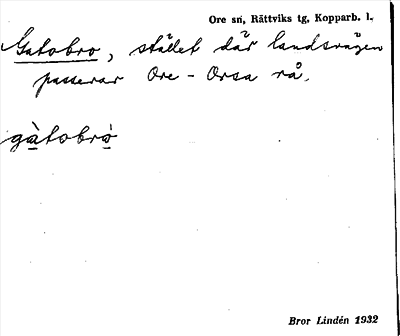 Ore sn, Rättviks tg, Kopparb. l.
Gatobro, stället där landsvägen
passerar Ore - Orsa rå.
gàtobrò
Bror Lindén 1932